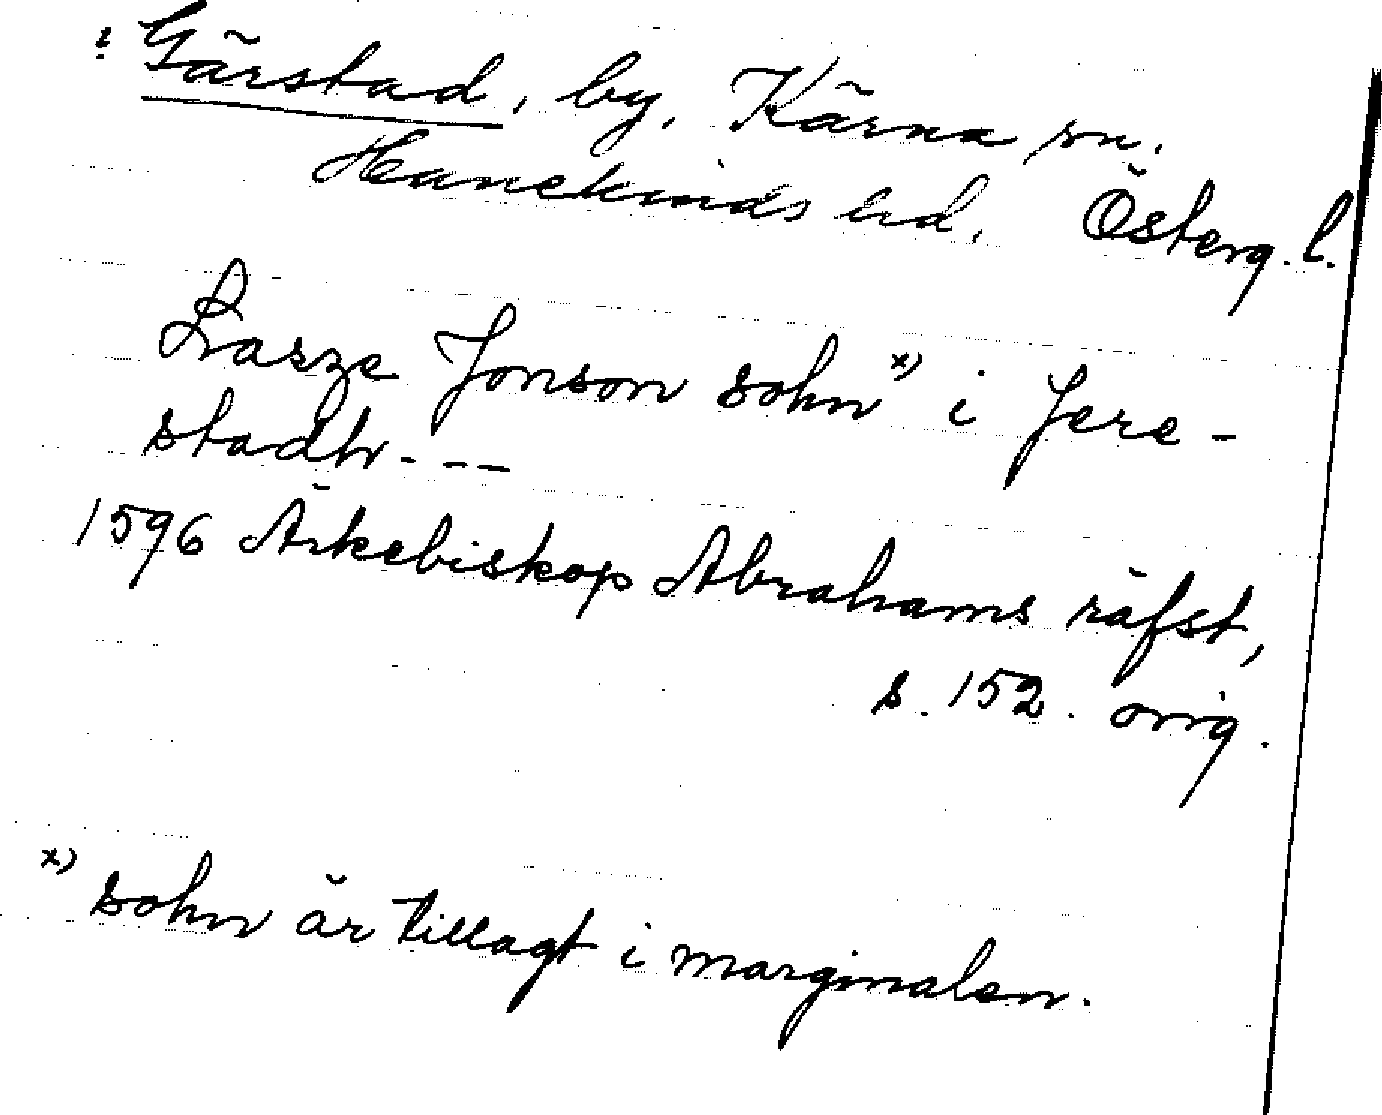 : Gärstad, by, Kärna sn.
Hanekinds hd. Österg. l.
Lasze Jonson sohn x) i Jere-
stadh - - -
1596 Ärkebiskop Abrahams räfst,
s. 152. orig.
x) sohn är tillagt i marginalen.